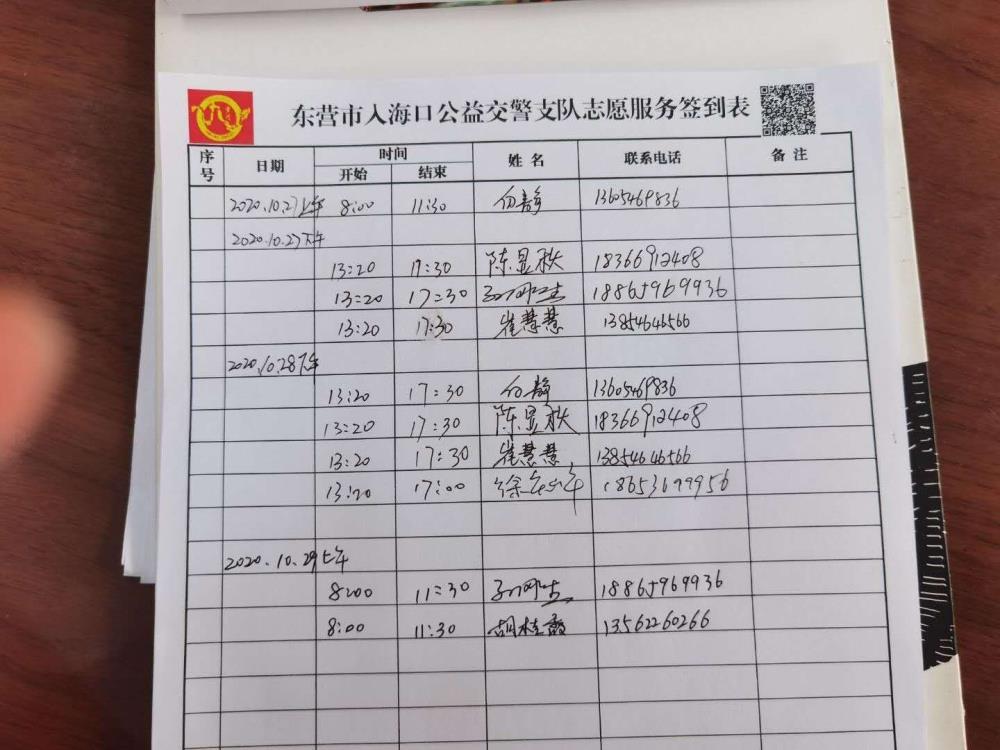 东营市入海口公益交警支队志愿服务签到表
序号 日期 时间 姓名 联系电话 备注
开始 结束
2020.10.27上午 8:00 11:30 白静 13605469836
2020.10.27下午
13:20 17:30 陈显秋 18366912408
13:20 17:30 18865969936
13:20 17:30 崔慧慧 13854646566
2020.10.28下午
13:20 17:30 白静 13605469836
13:20 17:30 陈显秋 18366912408
13:20 17:30 崔慧慧 13854646566
13:20 17:00 18653699956
2020.10.29上午
8:00 11:30 18865969936
8:00 11:30 胡桂霞 13562260266